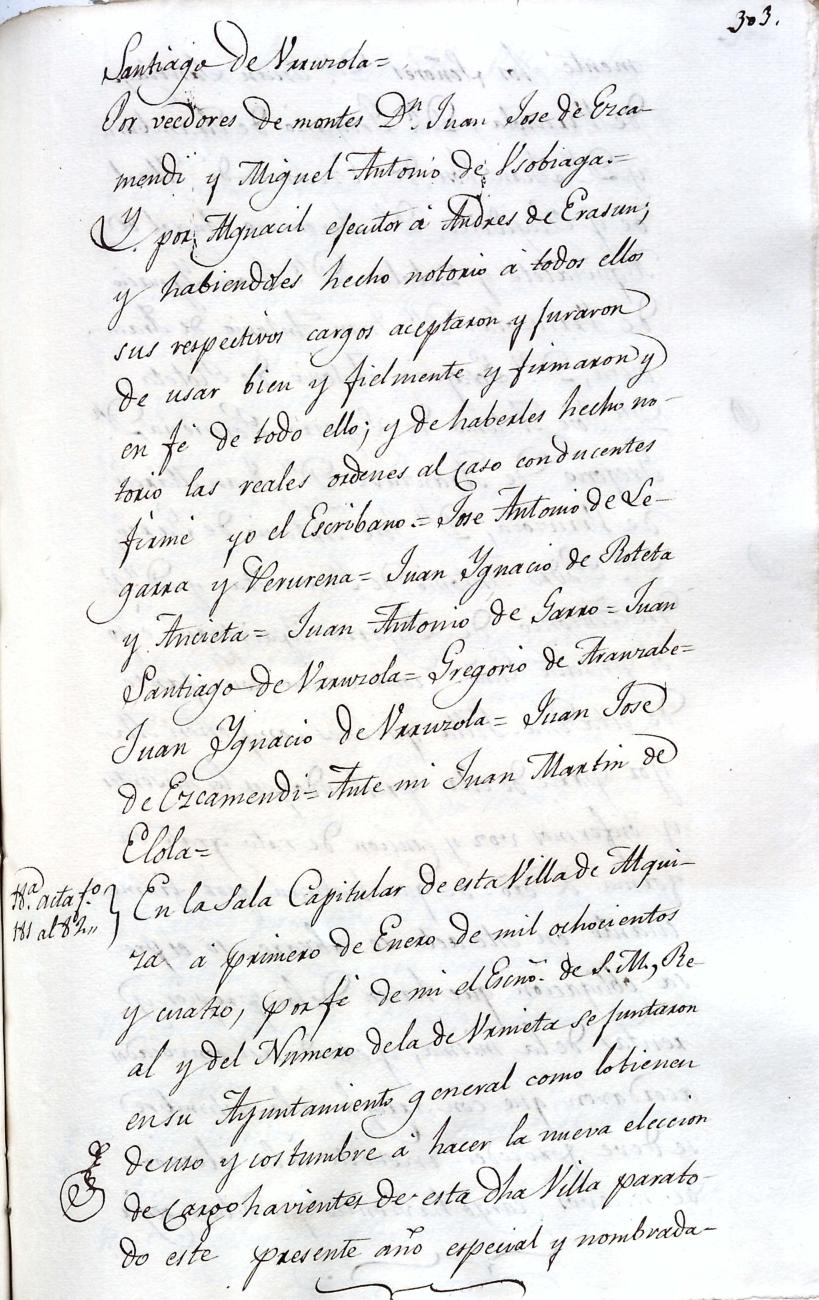 303.
Santiago de Vrruzola=
Por veedores de montes Dn. Juan Jose de Ezca-
mendi y Miguel Antonio de Vsobiaga.=
Y por Alguacil efecutor á Andres de Erasun;
y habiendoles hecho notorio á todos ellos
sus respectivos cargos aceptaron y juraron
de usar bien y fielmente y firmaron y
en fé de todo ello; y de haberles hecho no-
torio las reales ordenes al caso conducentes
firmé yo el Escribano.= Jose Antonio de Le-
garra y Verurena= Juan Ygnacio de Roteta
y Ancieta= Juan Antonio de Garro= Juan
Santiago de Vrruzola= Gregorio de Aranzabe=
Juan Ygnacio de Vrruzola= Juan Jose
de Ezcamendi= Ante mi Juan Martin de
Elola=
18a. acta fo.
181 al 82,,
En la Sala Capitular de esta Villa de Alqui-
za á primero de Enero de mil ochocientos
y cuatro, por fé de mi el Escno. de S. M., Re-
al y del Numero de la de Vrnieta se juntaron
en su Ayuntamiento general como lo tienen
de uso y costumbre á hacer la nueva eleccion
de Cargo havientes de esta dha Villa para to-
do este presente año especial y nombrada-